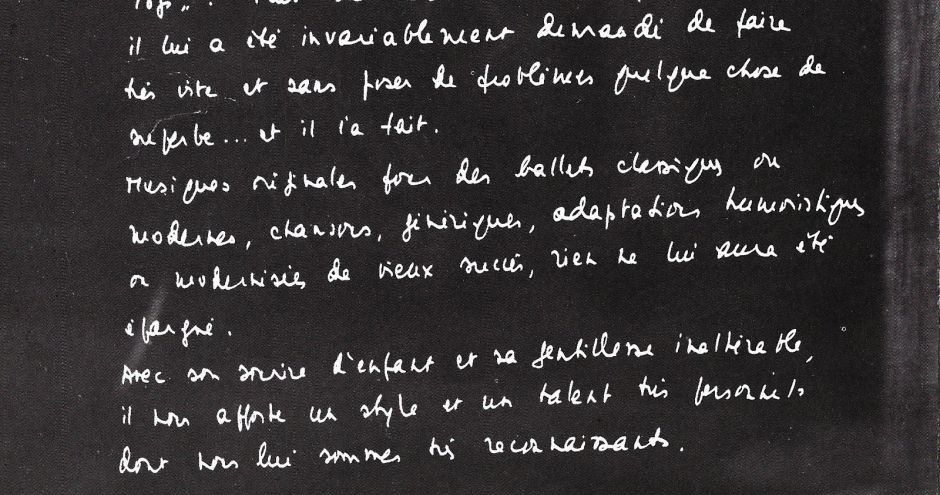 il lui a été invariablement demandé de faire
très vite et sans poser de problèmes quelque chose de
superbe... et il l'a fait.
Musiques originales pour des ballets classiques ou
modernes, chansons, génériques, adaptations humoristiques
ou modernisées de vieux succès, rien ne lui aura été
épargné.
Avec son sourire d'enfant et sa gentillesse inaltérable,
il nous apporte un style et un talent très personnels
dont nous lui sommes très reconnaissants.